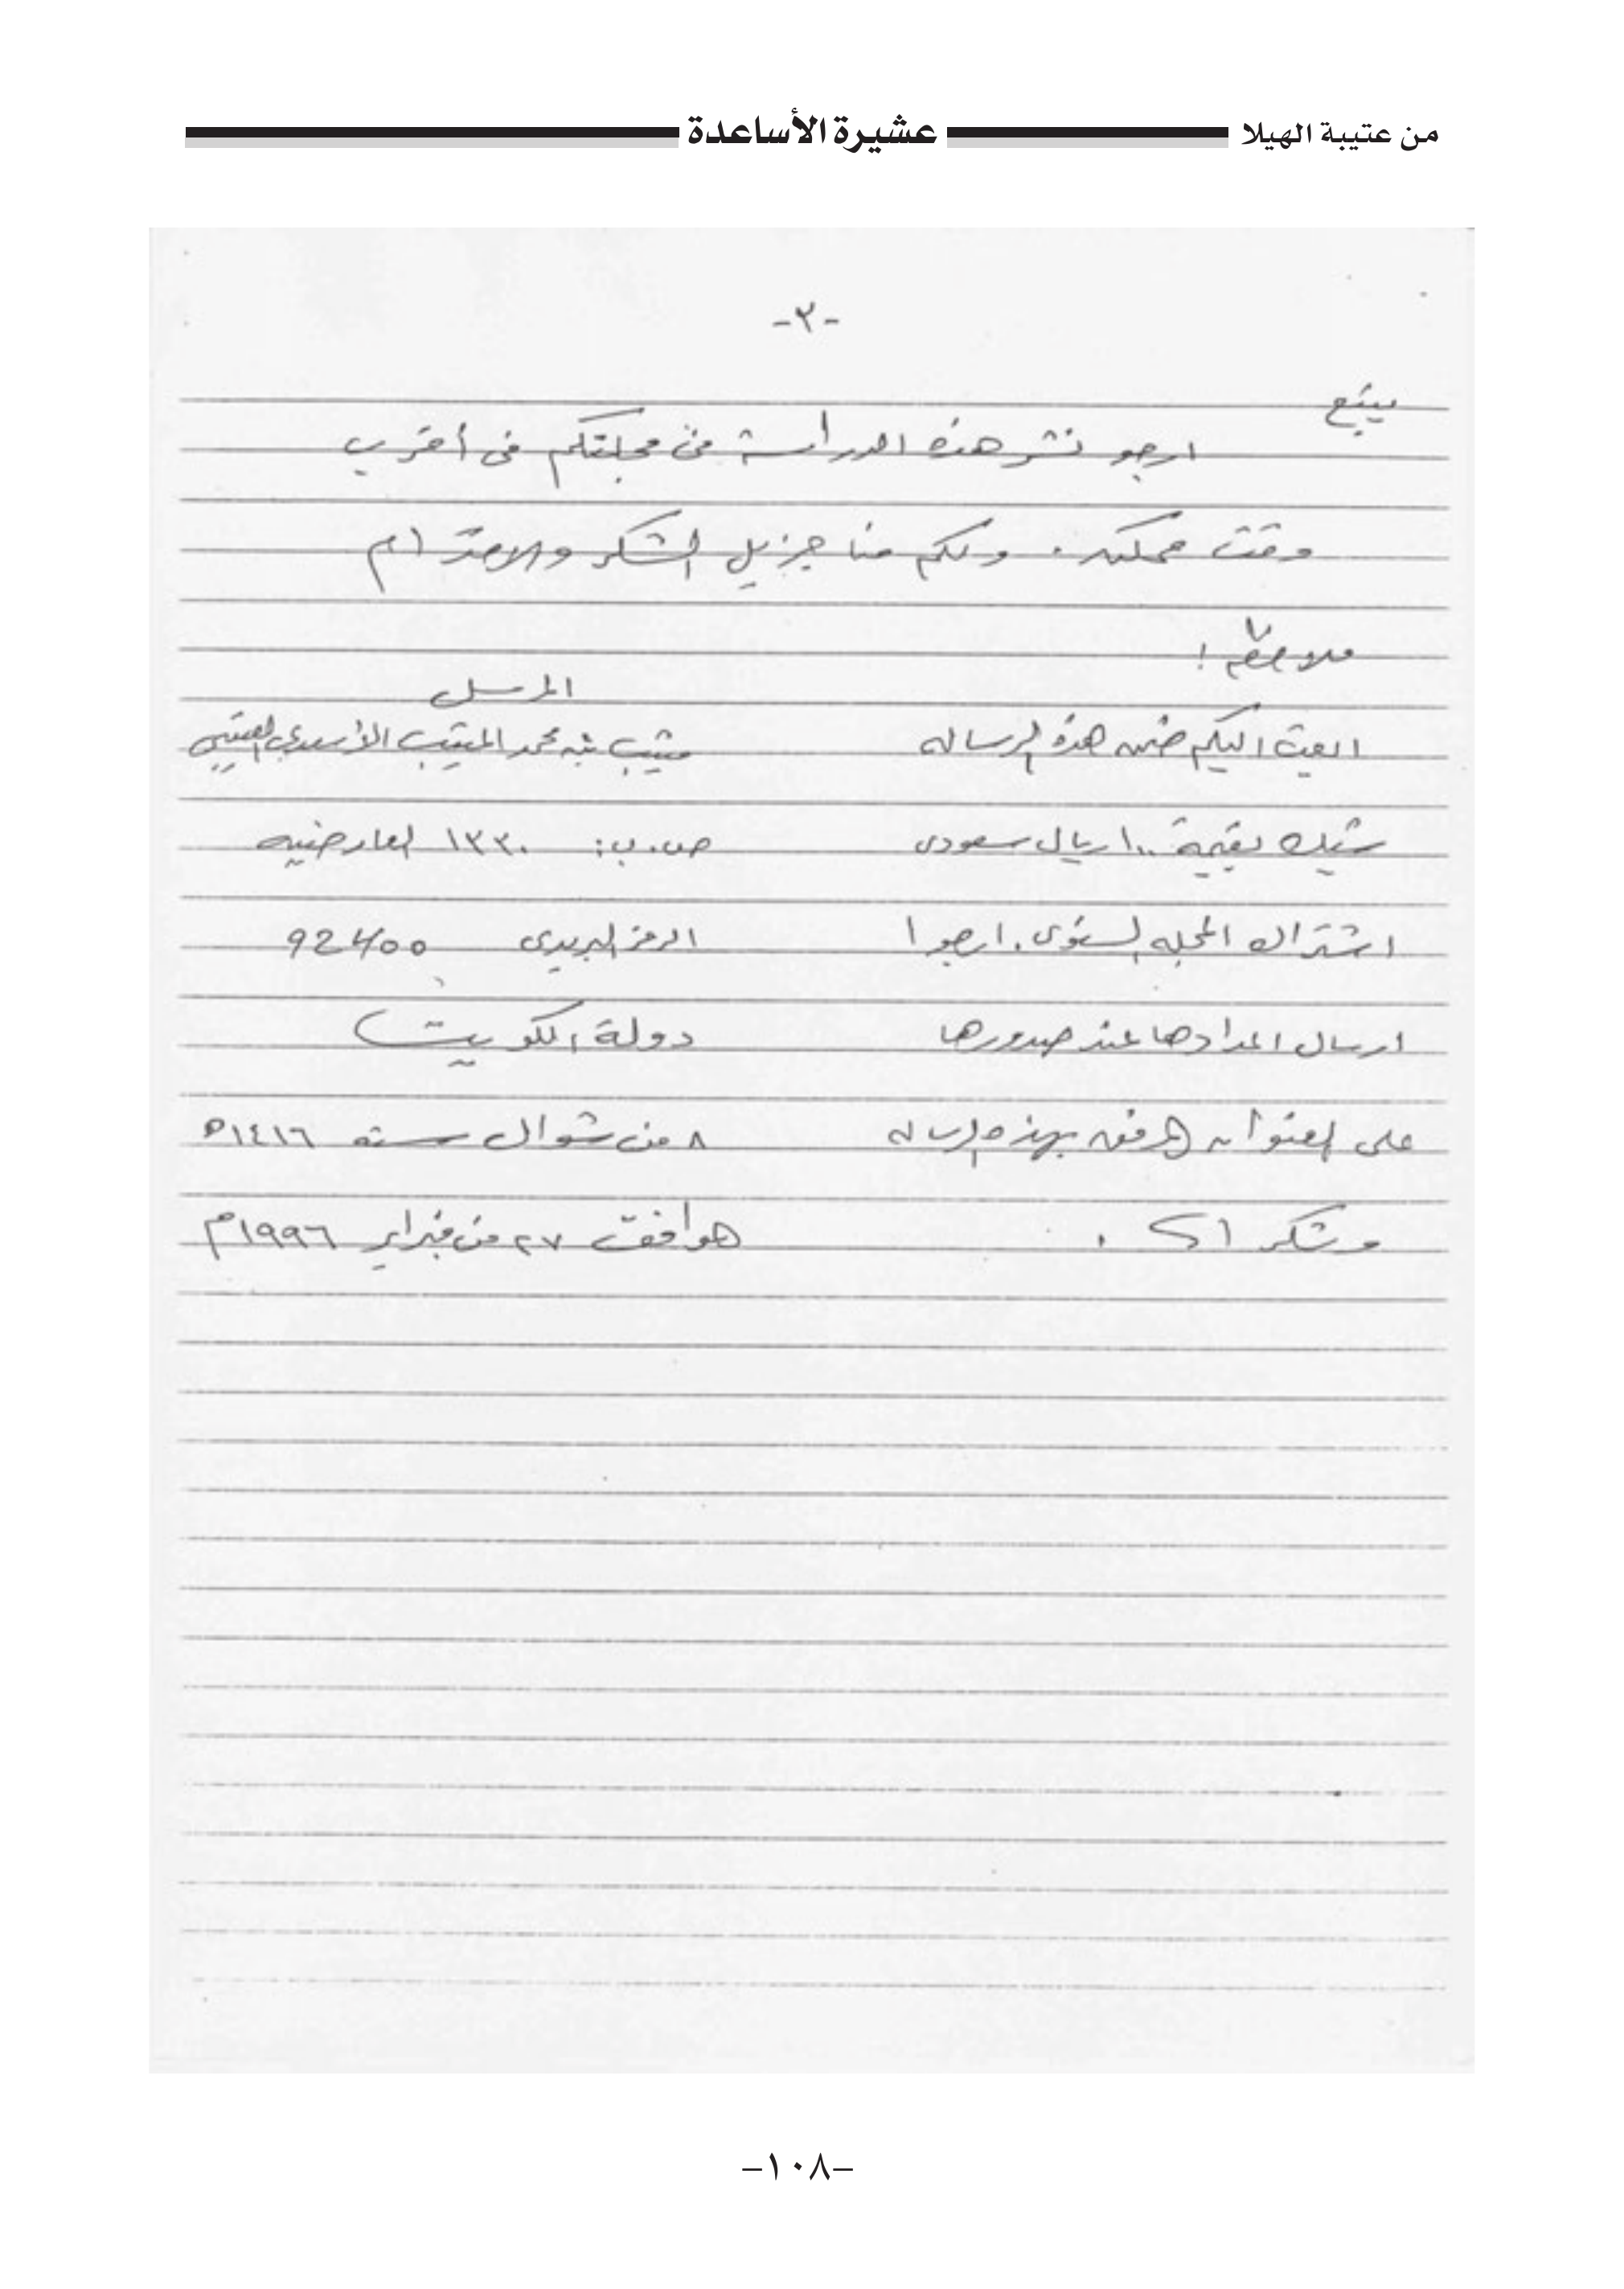 من عتيبة الهيلا
عشيرة الأساعدة
-٣-
يتبع
ارجو نشر هذه الدراسة في مجلتكم في أقرب
وقت ممكن . ولكم منا جزيل الشكر والاحترام
ملاحظه :
ابعث اليكم ضمن هذه الرساله
شيك بقيمة ١٠٠ ريال سعودي
اشتراك المجله السنوي . ارجوا
ارسال اعدادها عند صدورها
على العنوان المرفق بهذه الرساله
وشكرا .
المرسل
بن محمد الأسعدي العتيبي
ص.ب: ١٣٣٠ العارضيه
الرمز البريدي 92400
دولة الكويت
٨ من شوال سنه ١٤١٦ه
موافق ٢٧ من فبراير ١٩٩٦م
-١٠٨-